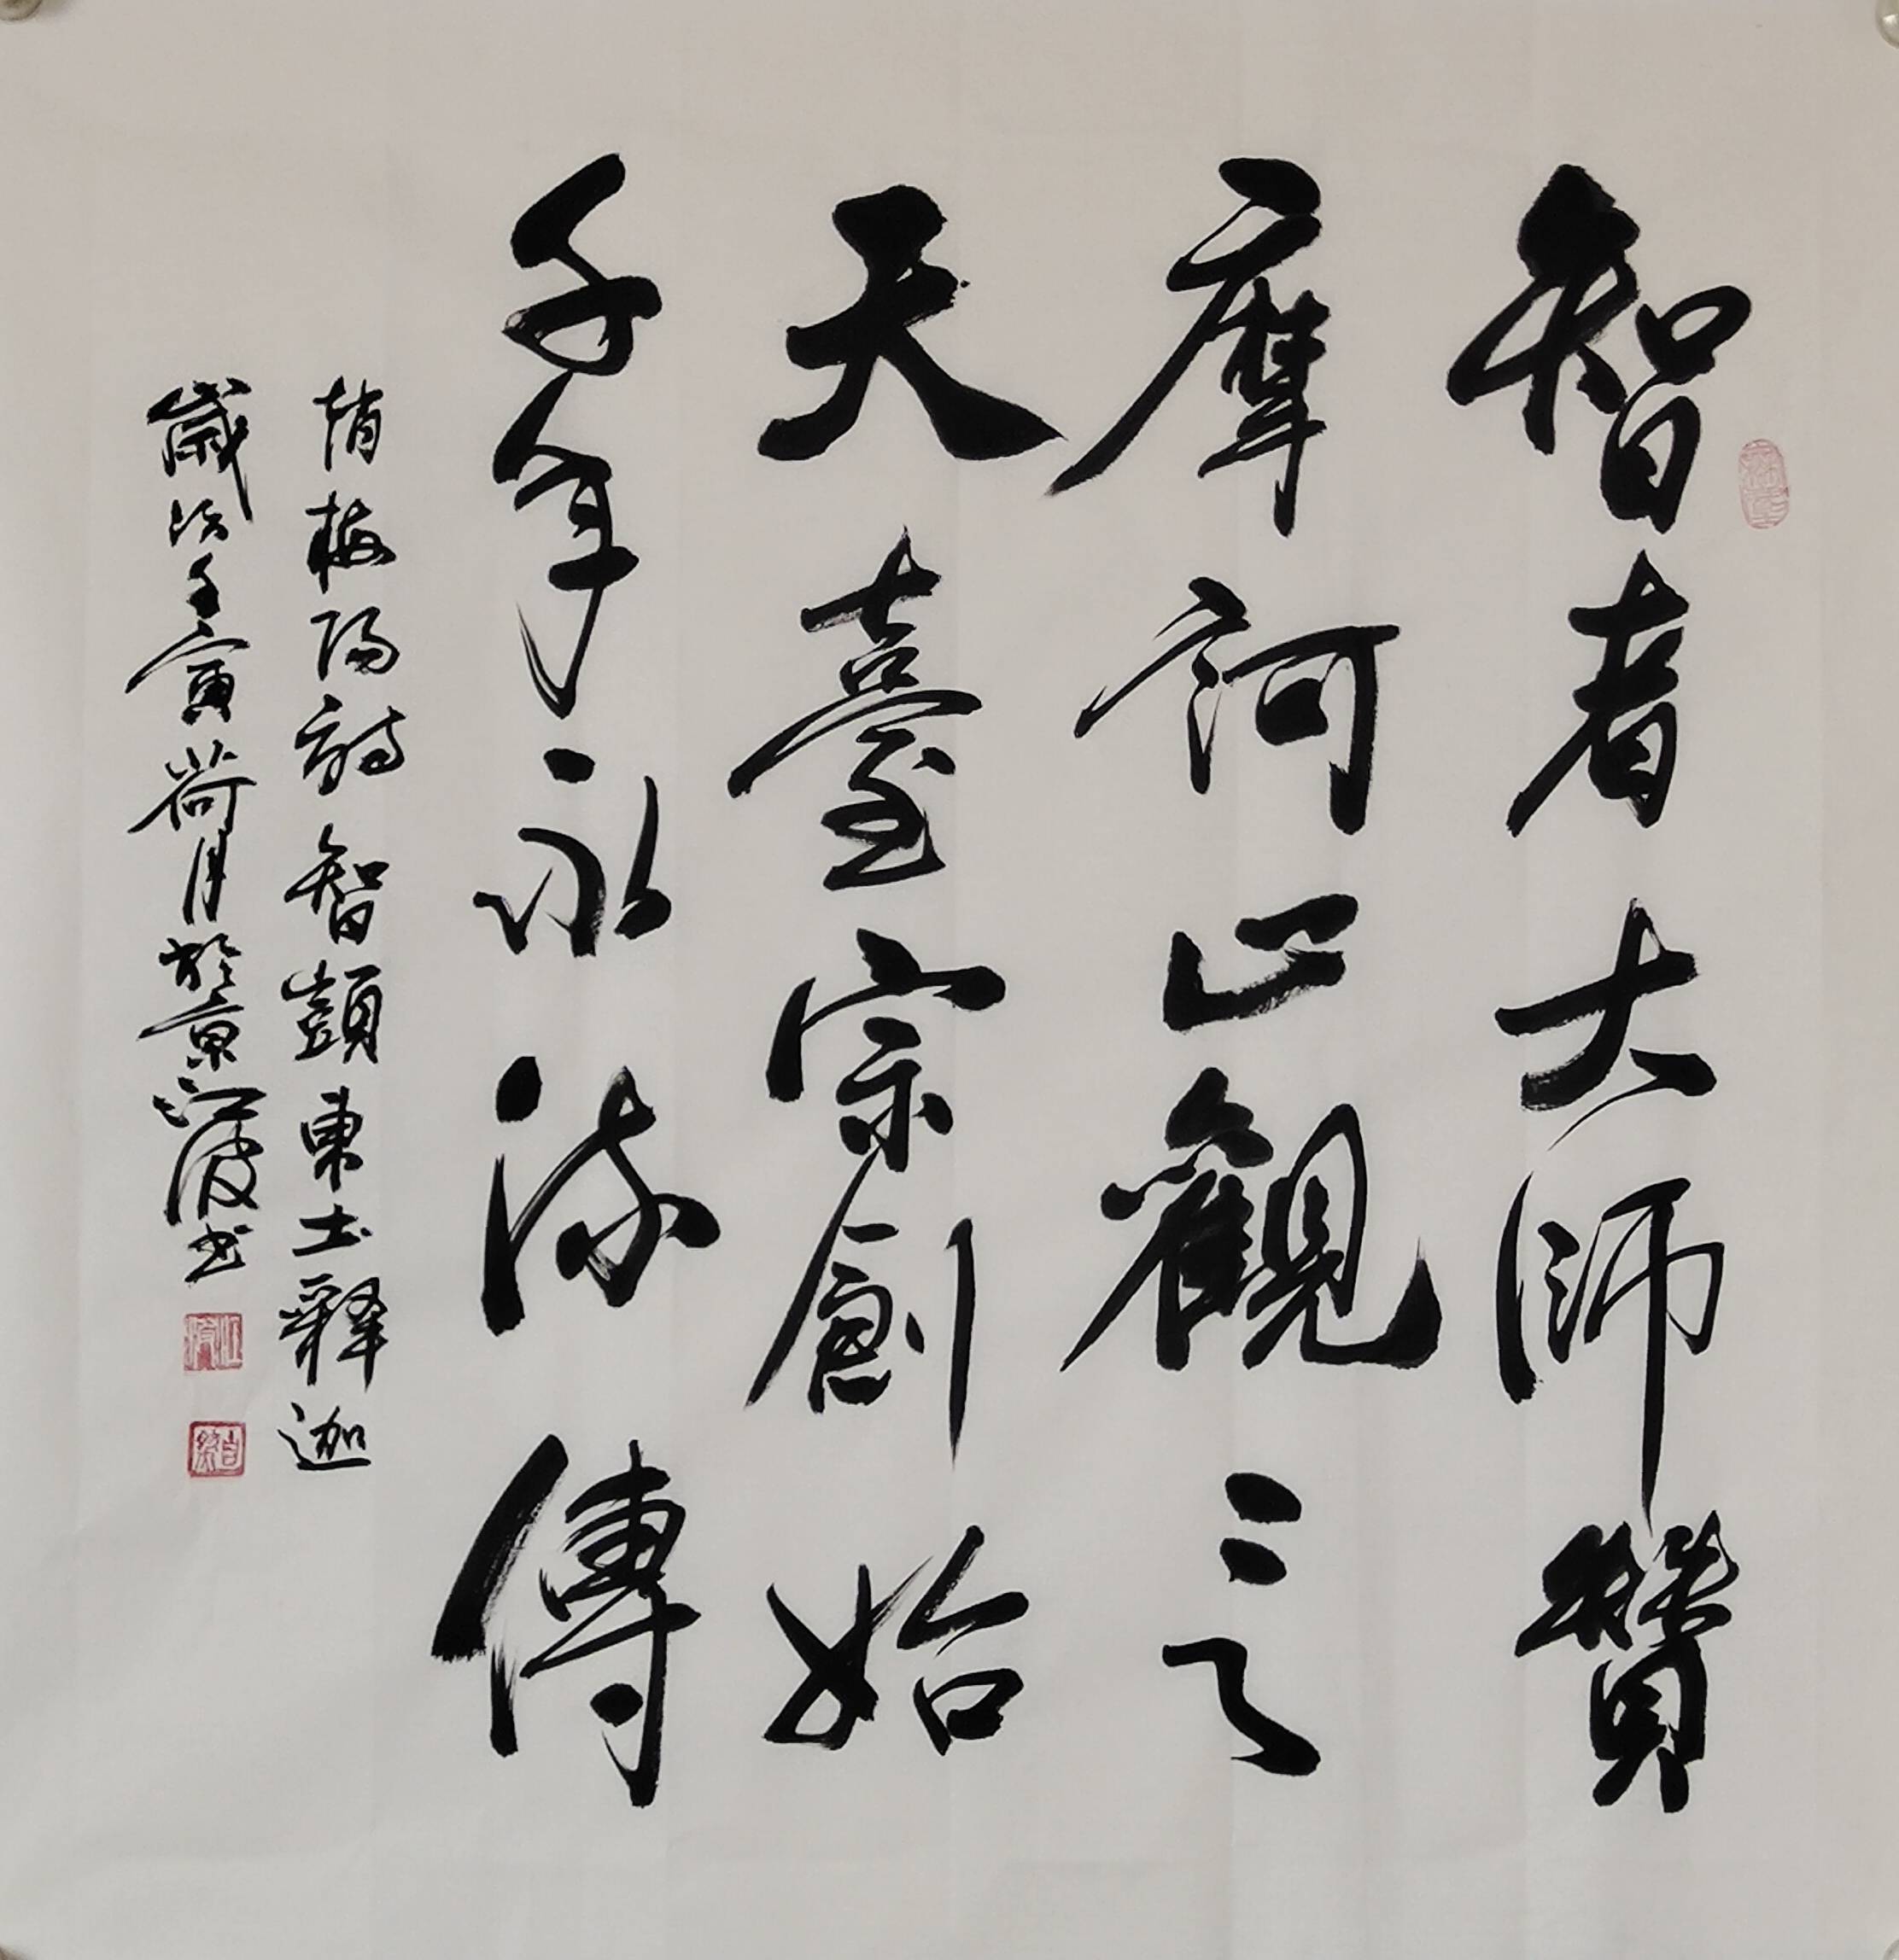 智者大師贊
摩訶止觀之
天臺宗創始
千年永流傳
趙梅陽詩智顗東土釋迦
歲次壬寅荷月於京江波书
江波